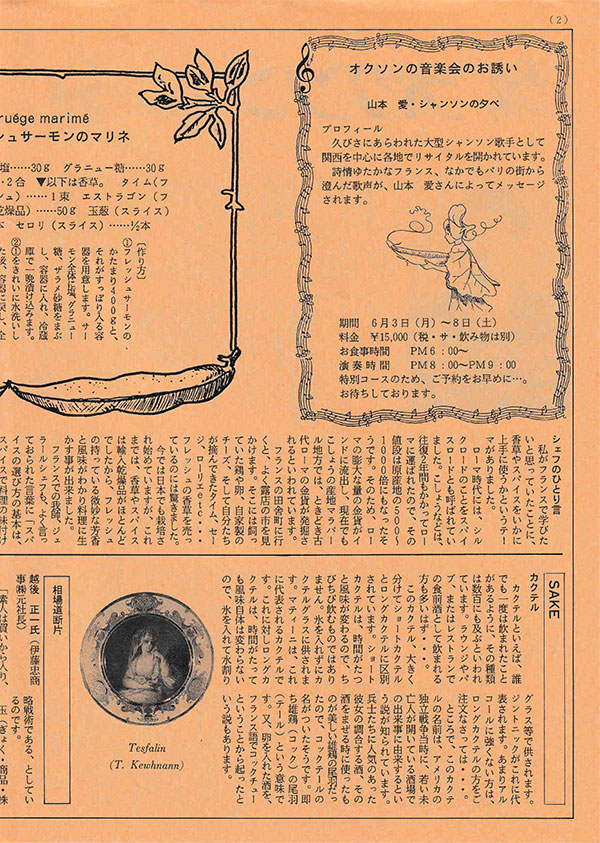 (2)
オクソンの音楽会のお誘い
山本 愛・シャンソンの夕べ
プロフィール
久びさにあらわれた大型シャンソン歌手として
関西を中心に各地でリサイタルを開かれています。
詩情ゆたかなフランス、なかでもパリの街から
澄んだ歌声が、山本 愛さんによってメッセージ
されます。
期間 6月3日(月)〜8日(土)
料金 ¥15,000(税・サ・飲み物は別)
お食事時間 PM6:00〜
演奏時間 PM8:00〜PM9:00
特別コースのため、ご予約をお早めに…。
お待ちしております。
ruége marimé
シュサーモンのマリネ
塩……30g グラニュー糖……30g
・2合 ▼以下は香草。 タイム(フ
シュ)……1束 エストラゴン(フ
乾燥品)……50g 玉葱(スライス)
本 セロリ(スライス)……½本
〔作り方〕
①フレッシュサーモンの
かたまり400gと、
それがすっぽり入る容
器を用意します。サー
モン全体に塩、グラニュー
糖、ザラメ砂糖をまぶ
し、容器に入れ、冷蔵
庫で一晩漬け込みます。
②①をきれいに水洗いし
た後、容器に戻し、全
シェフのひとり言
私がフランスで学びた
いと思っていたことに、
香草やスパイスをいかに
上手に使うかというテー
マがありました。
ローマの時代には、シル
クロードのことをスパイ
スロードとも呼ばれてい
ました。こしょうなどは、
往復2年間もかかってロー
マに運ばれたので、その
値段は原産地の500〜
1000倍にもなったそ
うです。そのため、ロー
マの膨大な量の金貨がイ
ンドに流出し、現在でも
こしょうの産地マラバー
ル地方では、ときどき古
代ローマの金貨が発掘さ
れるといわれています。
フランスの田舎町に行
くと、よく露店の市を見
かけます。そこには飼っ
ていた鶏や卵、自家製の
チーズ、そして自分たち
が摘んできたタイム、セー
ジ、ローリエetc・・・
フレッシュの香草を売っ
ているのには驚きました。
今では日本でも栽培さ
れ始めていますが、これ
までは、香草やスパイス
は輸入乾燥品がほとんど
でしたから、フレッシュ
の持っている微妙な芳香
と風味がわかり料理に生
かす事が出来ました。
フランスでの我師、ジェ
ラールシェフも、よく言っ
ておられた言葉に「スパ
イスの選び方の基本は、
スパイスで料理の味付け
SAKE
カクテル
カクテルといえば、誰
でも一度は飲まれたこと
があるように、その種類
は数百にも及ぶといわれ
ています。ラウンジやパ
ブ、またはレストランで
の食前酒として飲まれる
方も多いはず・・・。
このカクテル、大きく
分けてショートカクテル
とロングカクテルに区別
されています。ショート
カクテルは、時間がたつ
と風味が変わるので、ち
びちび飲むものではあり
ません。氷を入れずにカ
クテルグラスに供されま
す。マティーニは、これ
に代表されるカクテルで
す。これに対しロングカ
クテルは、時間がたって
も風味自体は変わらない
ので、氷を入れて水割り
グラス等で供されます。
ジントニックがこれに代
表されます。あまりアル
コールに強くない方は、
ロングカクテルの方をご
注文なさっては・・・。
ところで、このカクテ
ルの名前は、アメリカの
独立戦争当時に、若い未
亡人が開いている酒場で
の出来事に由来するとい
う説が知られています。
兵士たちに人気のあった
彼女の調合する酒、その
酒をまぜる時に使ったも
のが美しい雄鶏の尾羽だっ
たので、コックテールの
名がついたそうです。即
ち雄鶏（コック）の尾羽
（テール）という意味で
す。又、卵を入れた酒を、
フランス語でコックチュー
ということから起ったと
いう説もあります。
Tesfalin
(T. Kewhnann)
相場道断片
越後 正一氏（伊藤忠商
事㈱元社長）
「素人は買いから入り、
略戦術である、としてい
るのです。
玉（ぎょく・商品・株